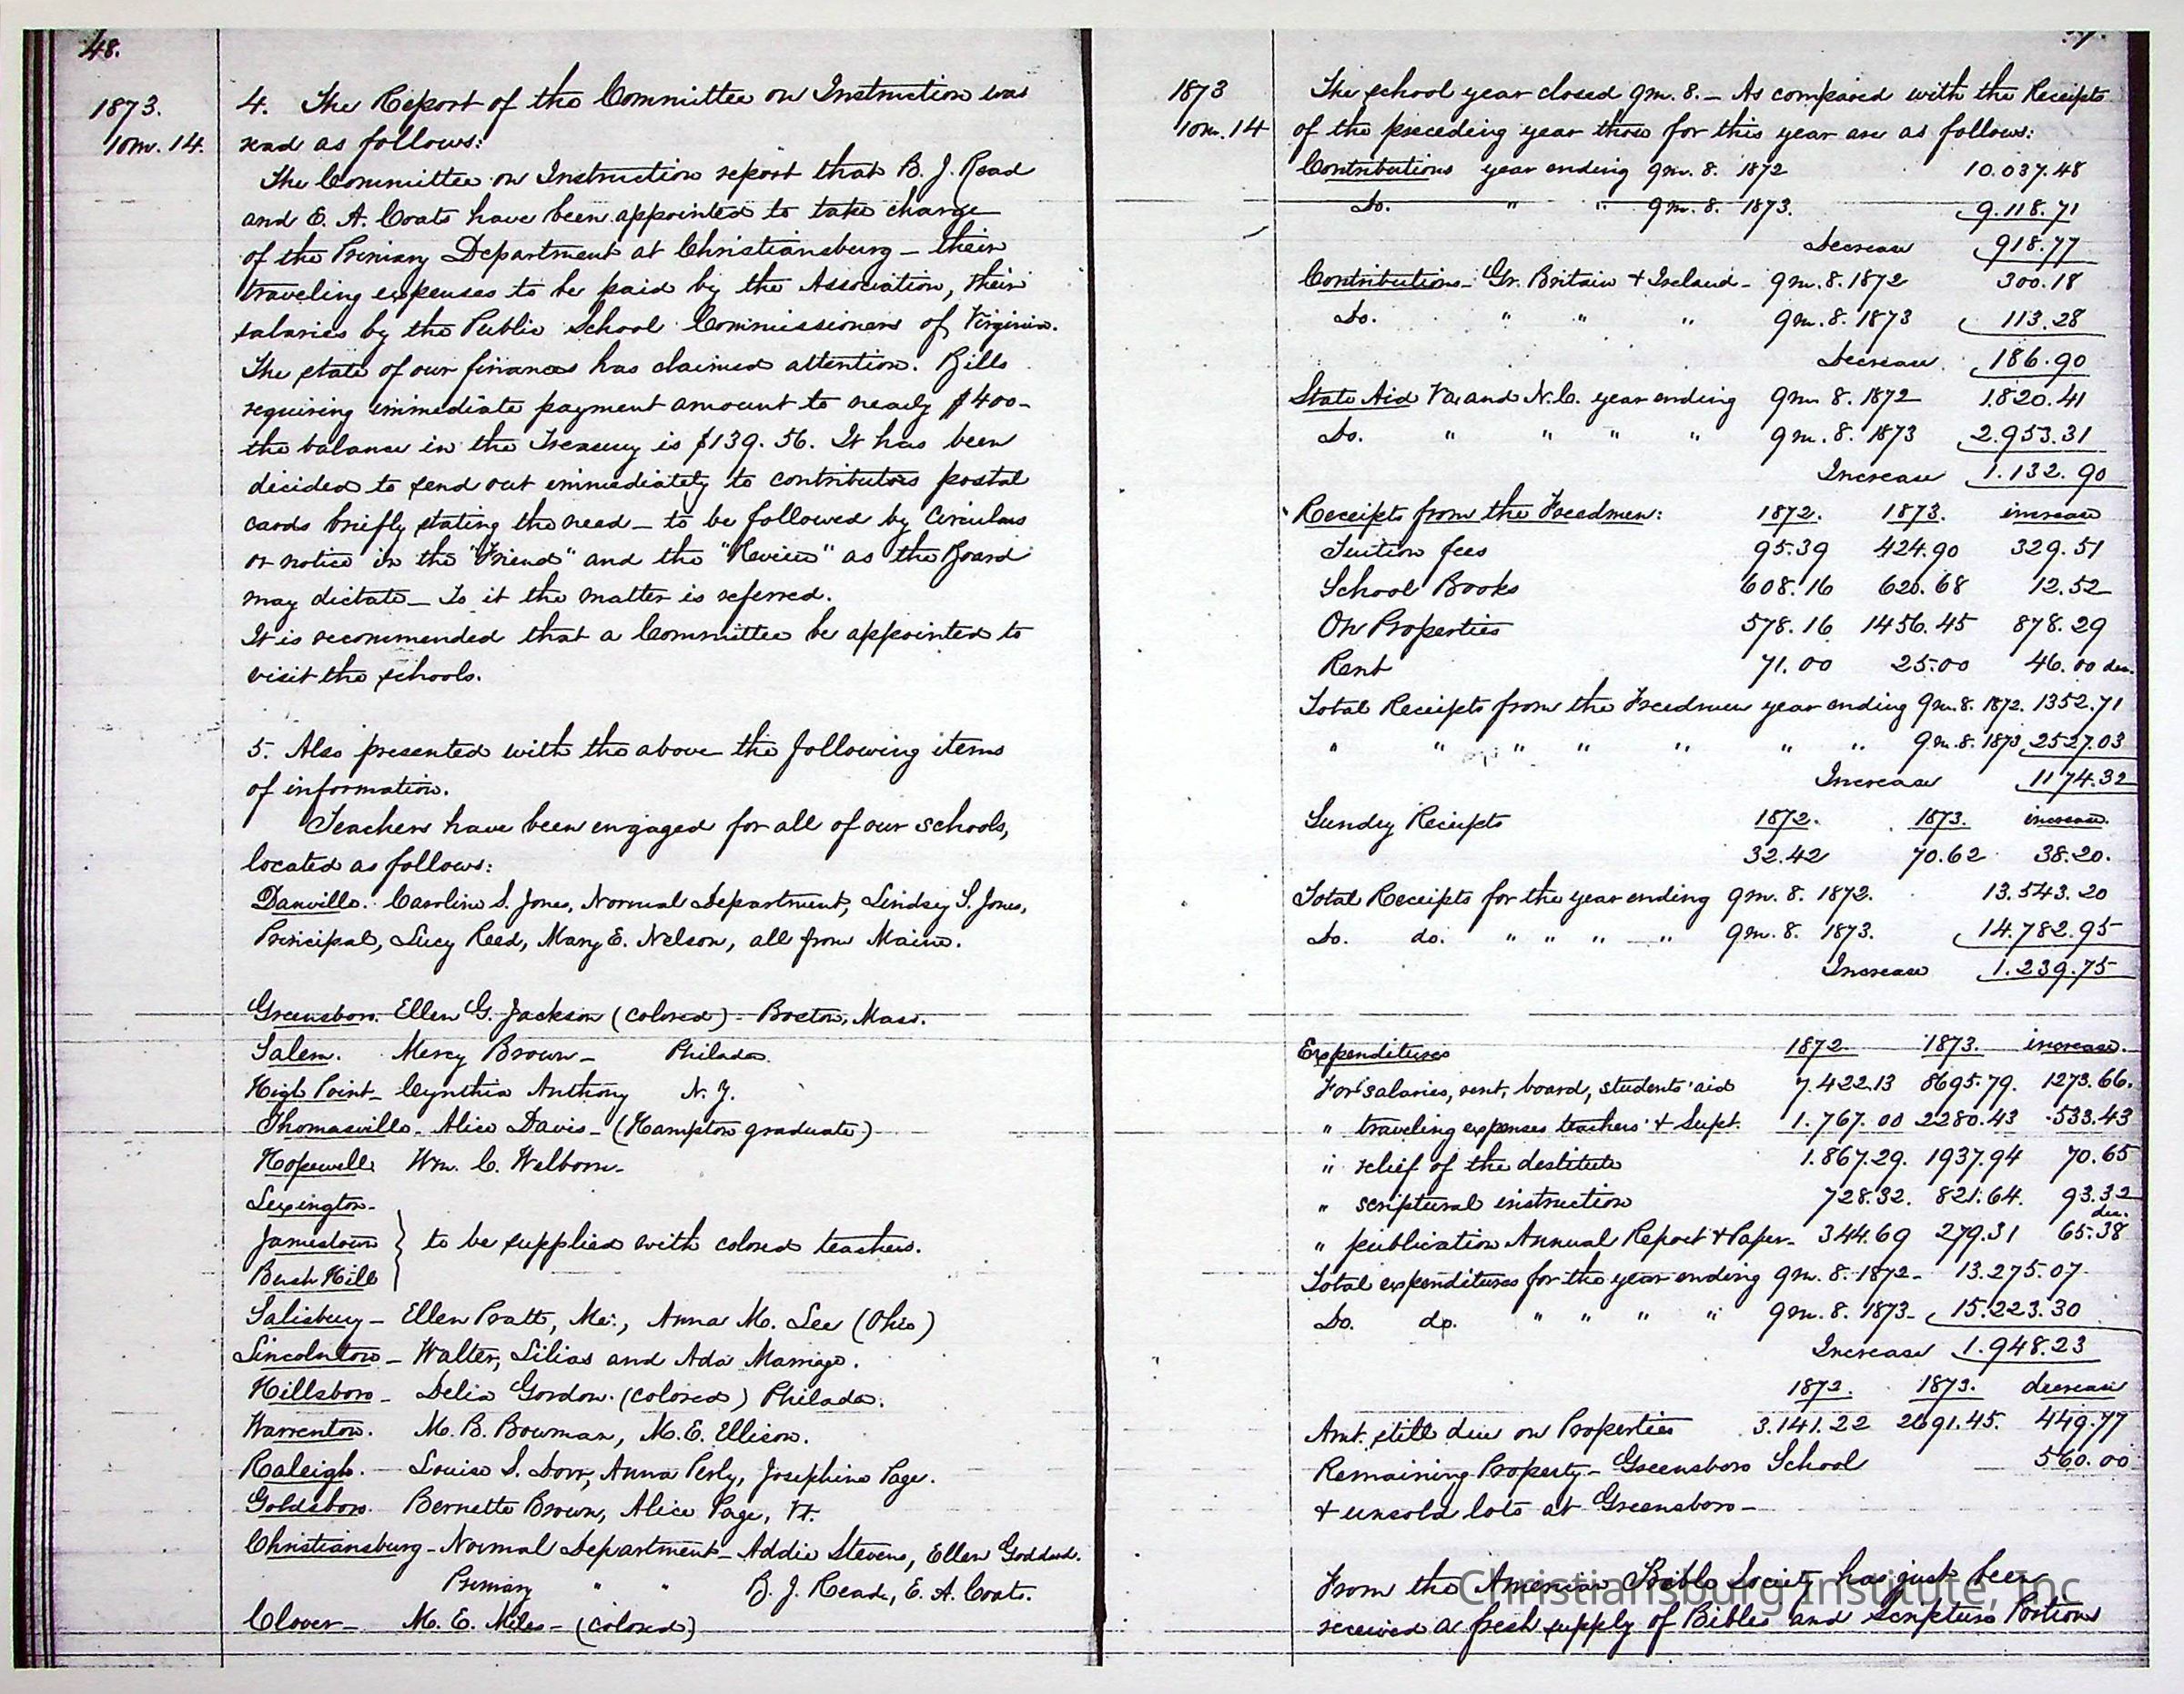 48.
1873.
10m. 14.
4. The Report of the Committee on Instruction was
read as follows:
The Committee on Instruction report that B. J. Read
and E. A. Coats have been appointed to take charge
of the Primary Department at Christiansburg – their
traveling expenses to be paid by the Association, their
salaries by the Public School Commissioners of Virginia.
The state of our finances has claimed attention. Bills
requiring immediate payment amount to nearly $400–
the balance in the Treasury is $139.56. It has been
decided to send out immediately to contributors postal
cards briefly stating the need – to be followed by Circulars
or notice in the "Friend" and the "Review" as the Board
may dictate – To it the matter is referred.
It is recommended that a Committee be appointed to
visit the schools.
5. Also presented with the above the following items
of information.
Teachers have been engaged for all of our schools,
located as follows:
Danville. Caroline S. Jones, Normal Department, Lindsey S. Jones,
Principal, Lucy Reed, Mary E. Nelson, all from Maine.
Greensboro. Ellen G. Jackson (colored) – Boston, Mass.
Salem. Mercy Brown – Philada.
High Point – Cynthia Anthony N. Y.
Thomasville – Alice Davis – (Hampton graduate)
Hopewell Wm. C. Welborn –
Lexington –
Jamestown } to be supplied with colored teachers.
Bush Hill
Salisbury – Ellen Pratt, Me., Anna M. Lee (Ohio)
Lincolnton – Walter, Lilias and Ada Marriage.
Hillsboro – Delia Gordon. (colored) Philada.
Warrenton. M. B. Bowman, M. E. Ellison.
Raleigh. – Louise S. Dorr, Anna Perly, Josephine Page.
Goldsboro. Bernette Brown, Alice Page, Vt.
Christiansburg – Normal Department – Addie Stevens, Ellen Goddard.
Primary " " B. J. Reade, E. A. Coats.
Clover – M. E. Miles – (colored)
1873
10m. 14
The school year closed 9m. 8. – As compared with the Receipts
of the preceding year those for this year are as follows:
Contributions year ending 9m. 8. 1872 10.037.48
Do. " " 9m. 8. 1873. 9.118.71
Decrease 918.77
Contributions – Gr. Britain & Ireland – 9m. 8. 1872 300.18
Do. " " " 9m. 8. 1873 113.28
Decrease 186.90
State Aid Va and N.C. year ending 9m 8. 1872 1.820.41
Do. " " " " 9m. 8. 1873 2.953.31
Increase 1.132.90
Receipts from the Freedmen: 1872. 1873. increase
Tuition fees 95.39 424.90 329.51
School Books 608.16 620.68 12.52
On Properties 578.16 1456.45 878.29
Rent 71.00 25.00 46.00 dec.
Total Receipts from the Freedmen year ending 9m. 8. 1872. 1352.71
" " " " " " " 9m. 8. 1873 2527.03
Increase 1174.32
Sundry Receipts 1872. 1873. increase.
32.42 70.62 38.20.
Total Receipts for the year ending 9m. 8. 1872. 13.543.20
Do. do. " " " " 9m. 8. 1873. 14.782.95
Increase 1.239.75
Expenditures 1872 1873. increase.
For salaries, rent, board, students' aid 7.422.13 8695.79. 1273.66.
" traveling expenses teachers' & Supt. 1.767.00 2280.43 533.43
" relief of the destitute 1.867.29. 1937.94 70.65
" scriptural instruction 728.32. 821.64. 93.32
dec.
" publication Annual Report & Paper – 344.69 279.31 65.38
Total expenditures for the year ending 9m. 8. 1872 – 13.275.07
Do. do. " " " " 9m. 8. 1873 – 15.223.30
Increase 1.948.23
1872. 1873. decrease
Amt. still due on Properties 3.141.22 2691.45. 449.77
Remaining Property – Greensboro School 560.00
& unsold lots at Greensboro –
From the American Bible Society has just been
received a fresh supply of Bibles and Scripture Portions
Christiansburg Institute, Inc